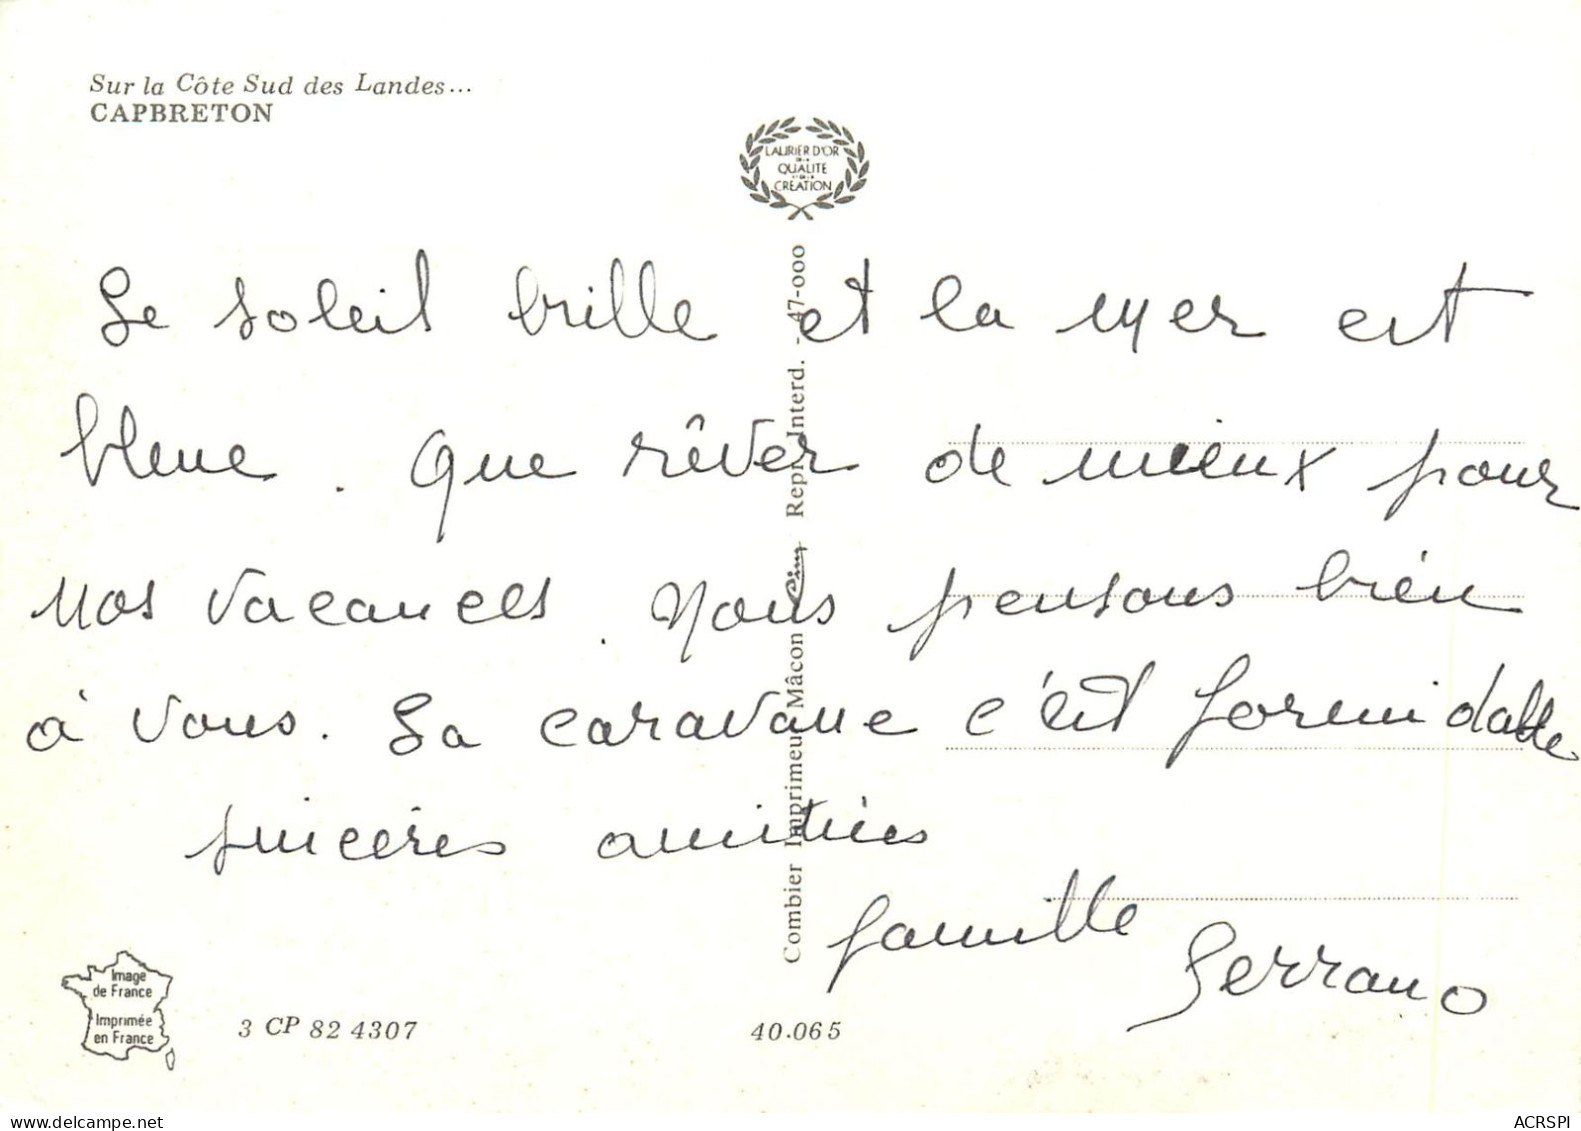 Sur la Côte Sud des Landes...
CAPBRETON
LAURIER D'OR
DE LA
QUALITE
ET DE LA
CREATION
Le soleil brille et la mer est
bleue. Que rêver de mieux pour
nos vacances. Nous pensons bien
à vous. La caravane c'est formidable
sincères amitiés
famille Serrano
Combier Imprimeur Mâcon Cim Repr. Interd. - 47-000
Image
de France
Imprimée
en France
3 CP 82 4307
40.065
www.delcampe.net
ACRSPI